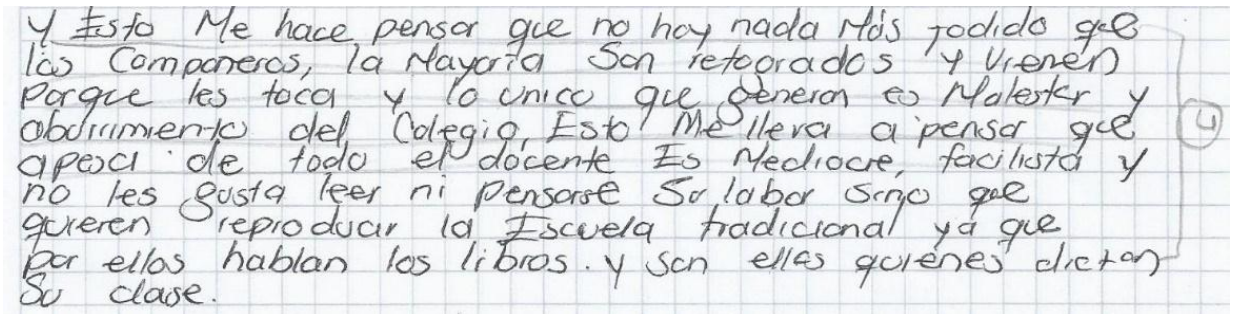 y Esto Me hace pensar que no hay nada Más jodido que
los Compañeros, la Mayoría Son retogrados y vienen
Porque les toca y lo único que generan es Malestar y
aburrimiento del Colegio, Esto Me lleva a pensar que
apesar de todo el docente Es Mediocre, facilista y
no les gusta leer ni pensarse Su labor sino que
quieren reproducir la Escuela tradicional ya que
por ellos hablan los libros. y son ellos quienes dictan
Su clase.
4